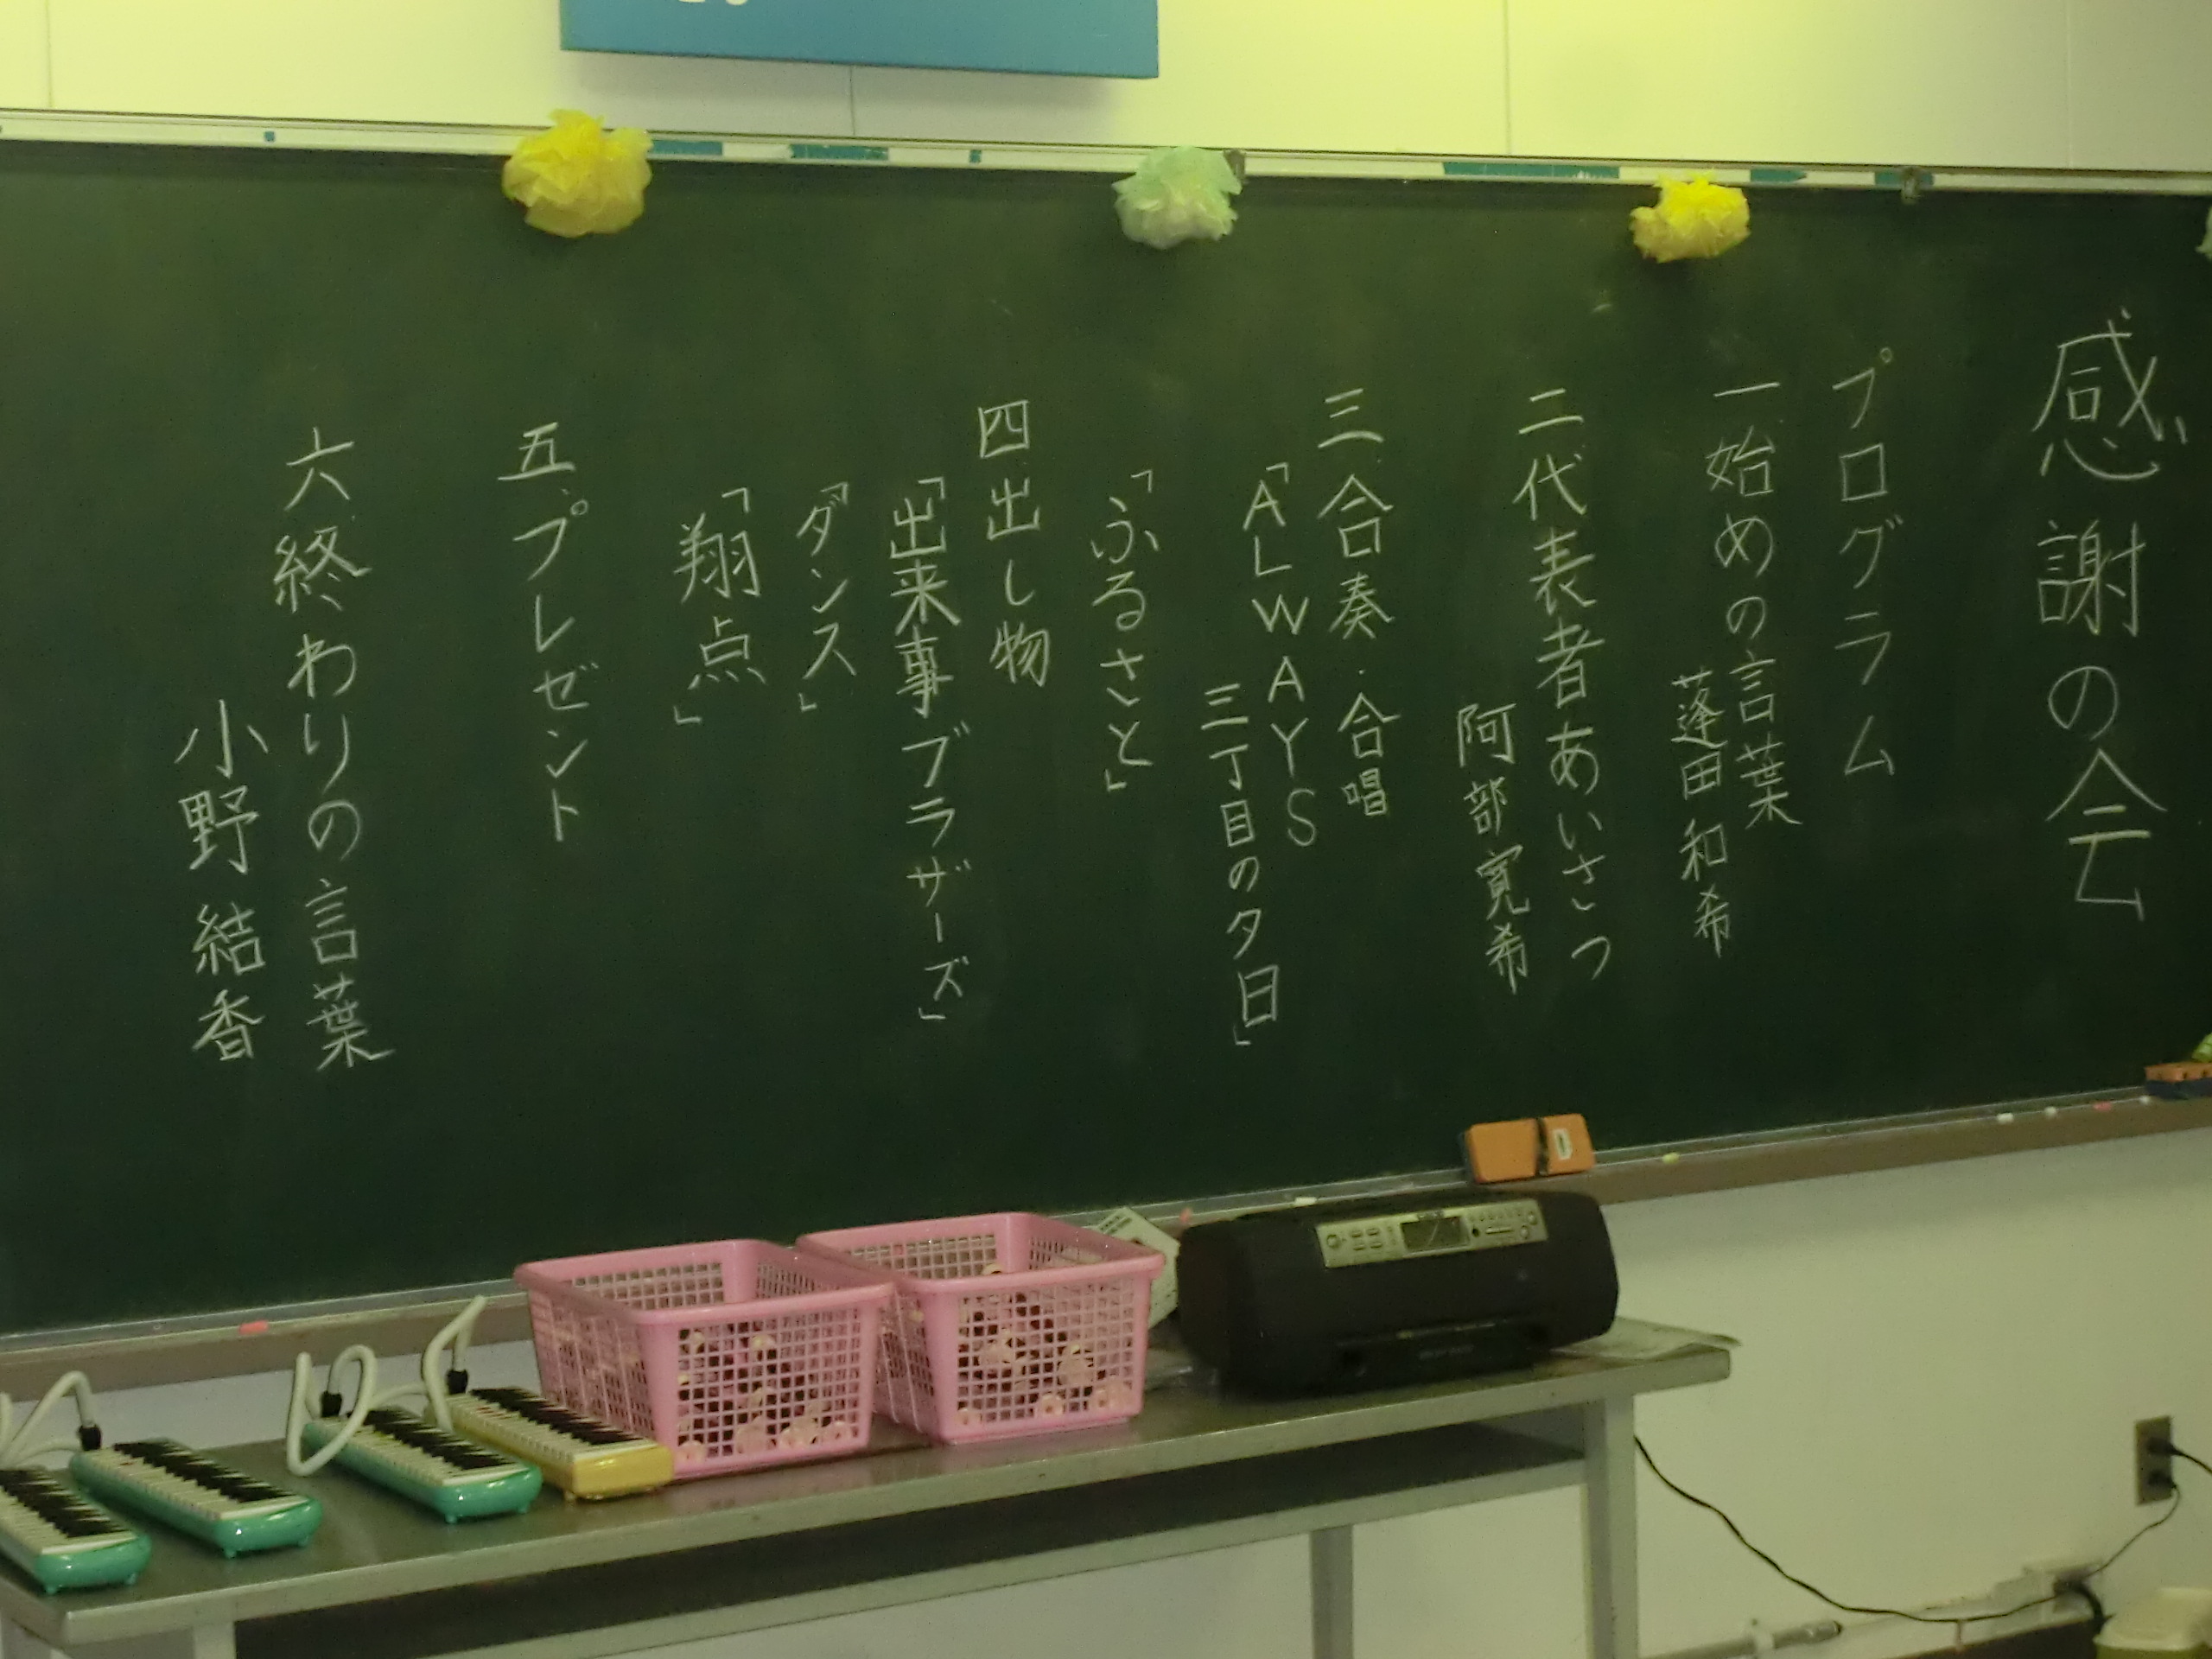 感謝の会
プログラム
一.始めの言葉
蓬田和希
二代表者あいさつ
阿部寛希
三.合奏.合唱
「ALWAYS
三丁目の夕日」
「ふるさと」
四出し物
「出来事ブラザーズ」
「ダンス」
「翔点」
五.プレゼント
六終わりの言葉
小野結香